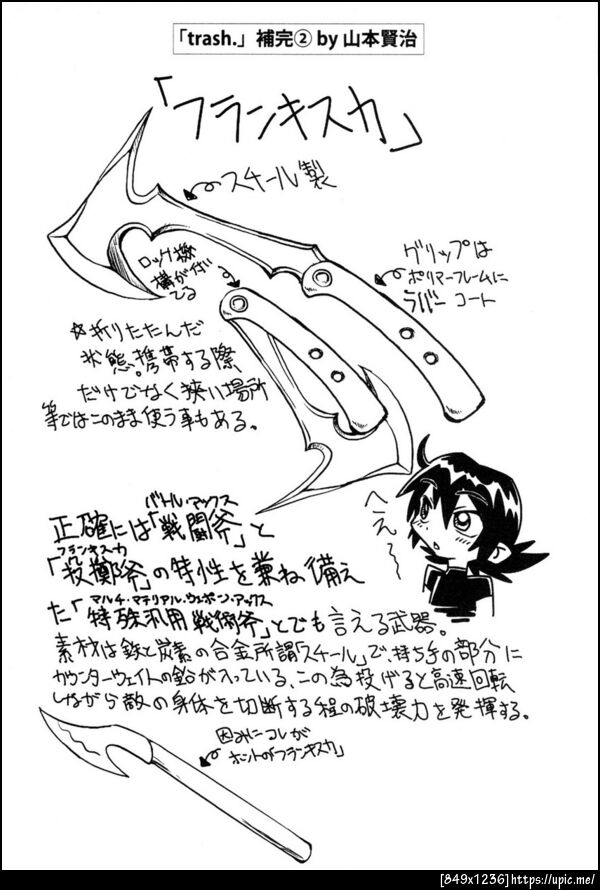 「trash.」補完② by 山本賢治
「フランキスカ」
スチール製
グリップは
ポリマーフレームに
ラバーコート
ロック機
構が付い
てる
☆折りたたんだ
状態。携帯する際
だけでなく狭い場所
等ではこのまま使う事もある。
へえ〜
バトル・アックス
正確には「戦闘斧」と
フランキスカ
「投擲斧」の特性を兼ね備え
マルチ・マテリアル・ウェポン・アックス
た「特殊汎用戦術斧」とでも言える武器。
素材は鉄と炭素の合金所謂「スチール」で、持ち手の部分に
カウンターウェイトの鉛が入っている、この為投げると高速回転
しながら敵の身体を切断する程の破壊力を発揮する。
因みにコレが
ホントの「フランキスカ」
[849x1236]https://upic.me/